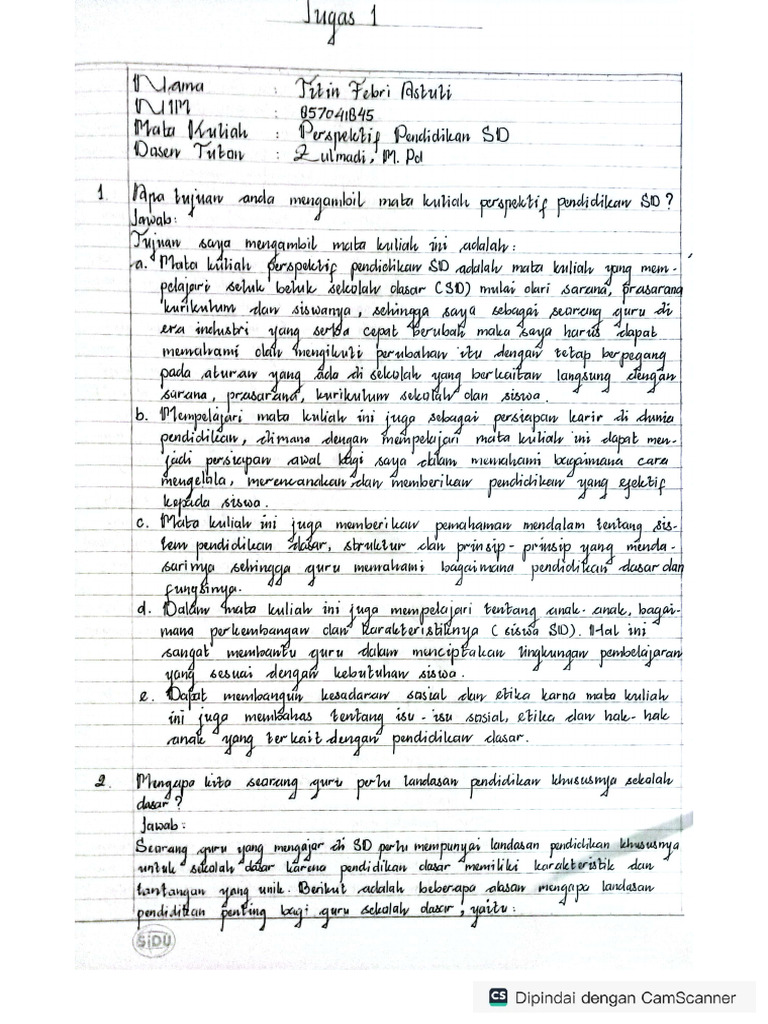 Tugas 1
Nama : Titin Febri Astuti
NIM : 857041845
Mata Kuliah : Perspektif Pendidikan SD
Dosen Tuton : Zulmadi, M. Pd
1. Apa tujuan anda mengambil mata kuliah perspektif pendidikan SD?
Jawab:
Tujuan saya mengambil mata kuliah ini adalah:
a. Mata kuliah perspektif pendidikan SD adalah mata kuliah yang mem-
pelajari seluk beluk sekolah dasar (SD) mulai dari sarana, prasarana
kurikulum dan siswanya, sehingga saya sebagai seorang guru di
era industri yang serba cepat berubah maka saya harus dapat
memahami dan mengikuti perubahan itu dengan tetap berpegang
pada aturan yang ada di sekolah yang berkaitan langsung dengan
sarana, prasarana, kurikulum sekolah dan siswa.
b. Mempelajari mata kuliah ini juga sebagai persiapan karir di dunia
pendidikan, dimana dengan mempelajari mata kuliah ini dapat men-
jadi persiapan awal bagi saya dalam memahami bagaimana cara
mengelola, merencanakan, dan memberikan pendidikan yang efektif
kepada siswa.
c. Mata kuliah ini juga memberikan pemahaman mendalam tentang sis-
tem pendidikan dasar, struktur dan prinsip-prinsip yang menda-
sarinya sehingga guru memahami bagaimana pendidikan dasar dan
fungsinya.
d. Dalam mata kuliah ini juga mempelajari tentang anak-anak, bagai-
mana perkembangan dan karakteristiknya (siswa SD). Hal ini
sangat membantu guru dalam menciptakan lingkungan pembelajaran
yang sesuai dengan kebutuhan siswa.
e. Dapat membangun kesadaran sosial dan etika karna mata kuliah
ini juga membahas tentang isu-isu sosial, etika dan hak-hak
anak yang terkait dengan pendidikan dasar.
2. Mengapa kita seorang guru perlu landasan pendidikan khususnya sekolah
dasar?
Jawab:
Seorang guru yang mengajar di SD perlu mempunyai landasan pendidikan khususnya
untuk sekolah dasar karena pendidikan dasar memiliki karakteristik dan
tantangan yang unik. Berikut adalah beberapa alasan mengapa landasan
pendidikan penting bagi guru sekolah dasar, yaitu:
SiDU
CS Dipindai dengan CamScanner